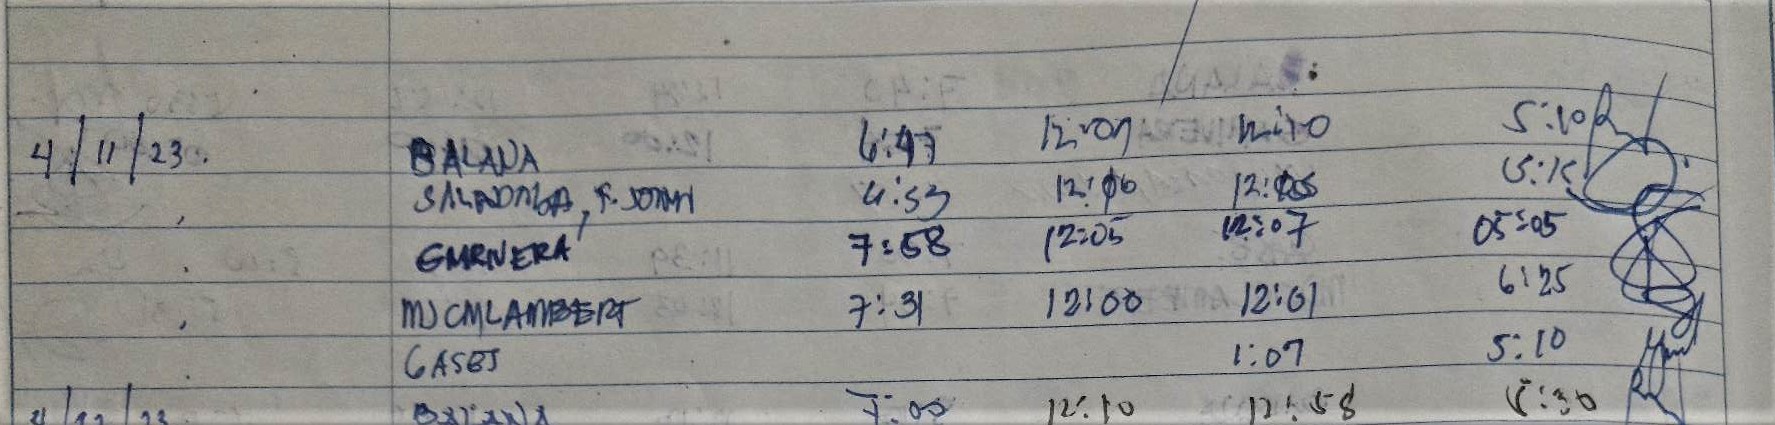 4/11/23. BALANA 6:47 12:07 12:10 5:10
12:06 12:05 5:15
GMRNERA 7:58 12:05 12:07 05:05
MJCMLAMBERT 7:31 12:00 12:01 6:25
GASES 1:07 5:10
4/12/23 BALANA 7:00 12:10 12:58 5:30